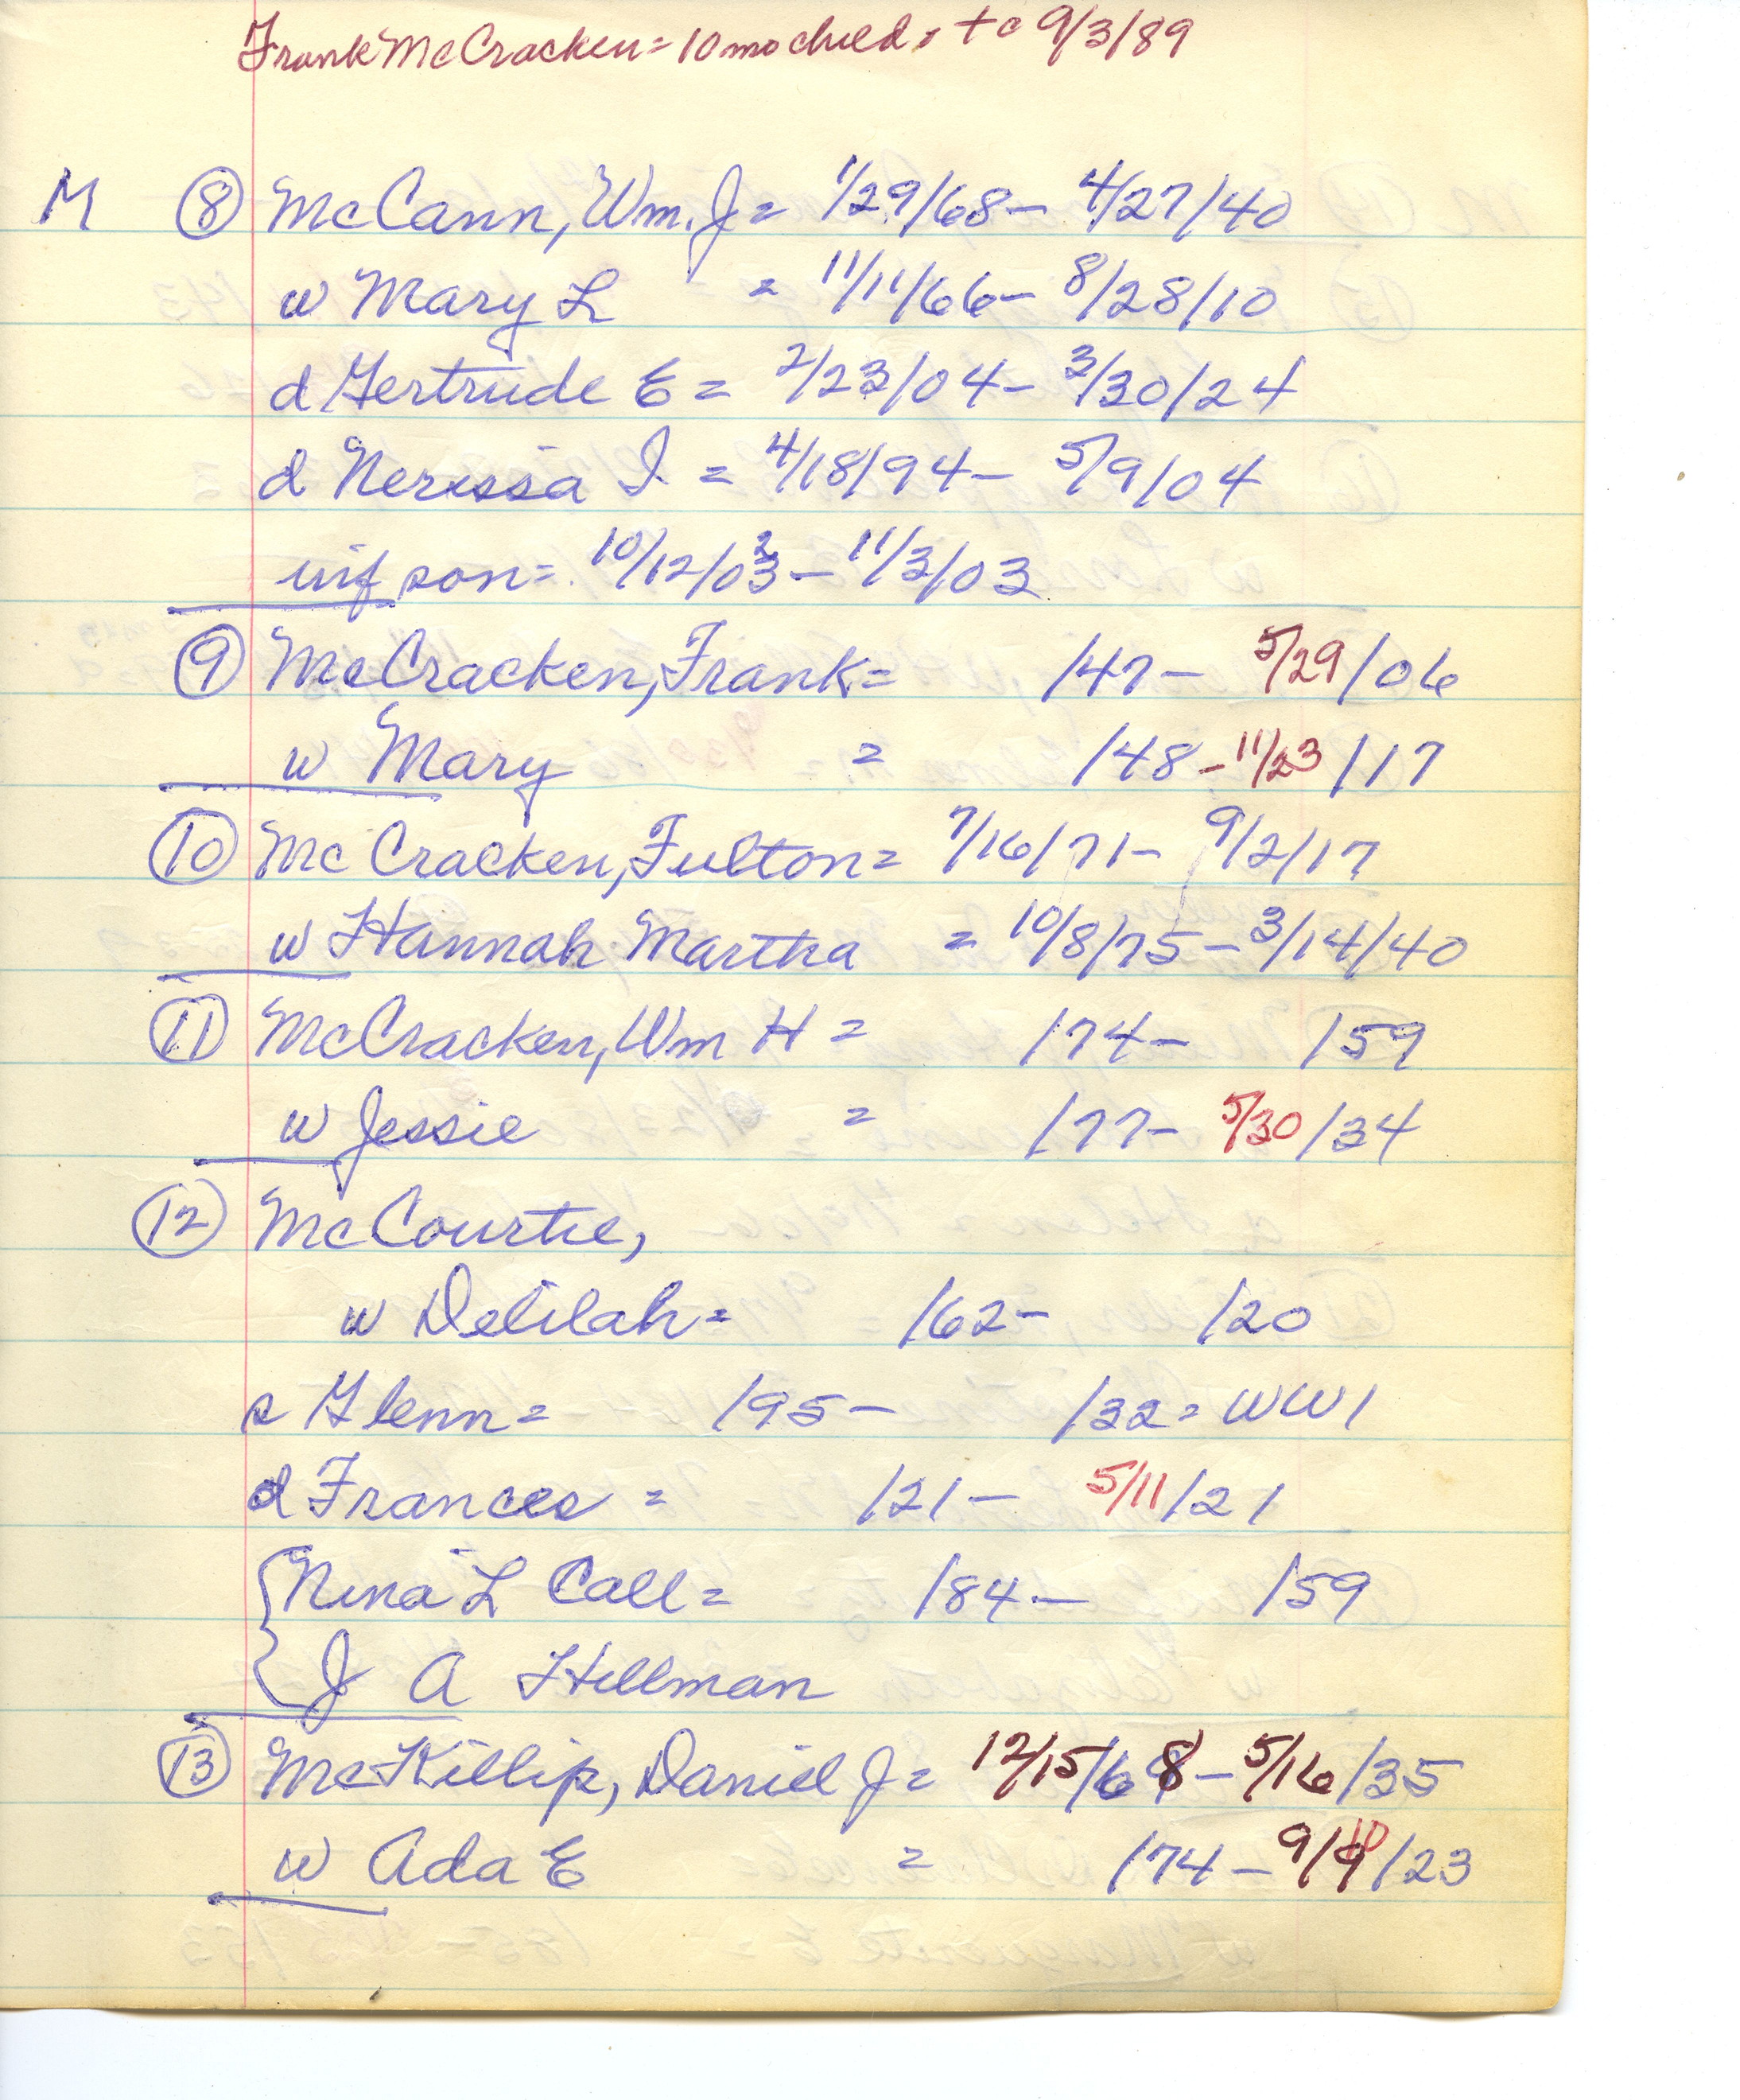 Frank McCracken = 10 mo child, + c 9/3/89
M ⑧ McCann, Wm. J = 1/29/68 - 4/27/40
w Mary L = 11/11/66 - 8/28/10
d Gertrude E = 2/23/04 - 3/30/24
d Nerissa I. = 4/18/94 - 5/9/04
inf son = 10/12/03 - 11/3/03
⑨ McCracken, Frank = /47 - 5/29/06
w Mary = /48 - 11/23/17
⑩ McCracken, Fulton = 7/16/71 - 9/2/17
w Hannah Martha = 10/8/75 - 3/14/40
⑪ McCracken, Wm H = /74 - /59
w Jessie = /77 - 5/30/34
⑫ McCourtie,
w Delilah = /62 - /20
s Glenn = /95 - /32 = WW1
d Frances = /21 - 5/11/21
Nina L Call = /84 - /59
J A Hillman
⑬ McKillip, Daniel J = 12/15/68 - 5/16/35
w Ada E = /74 - 9/10/23